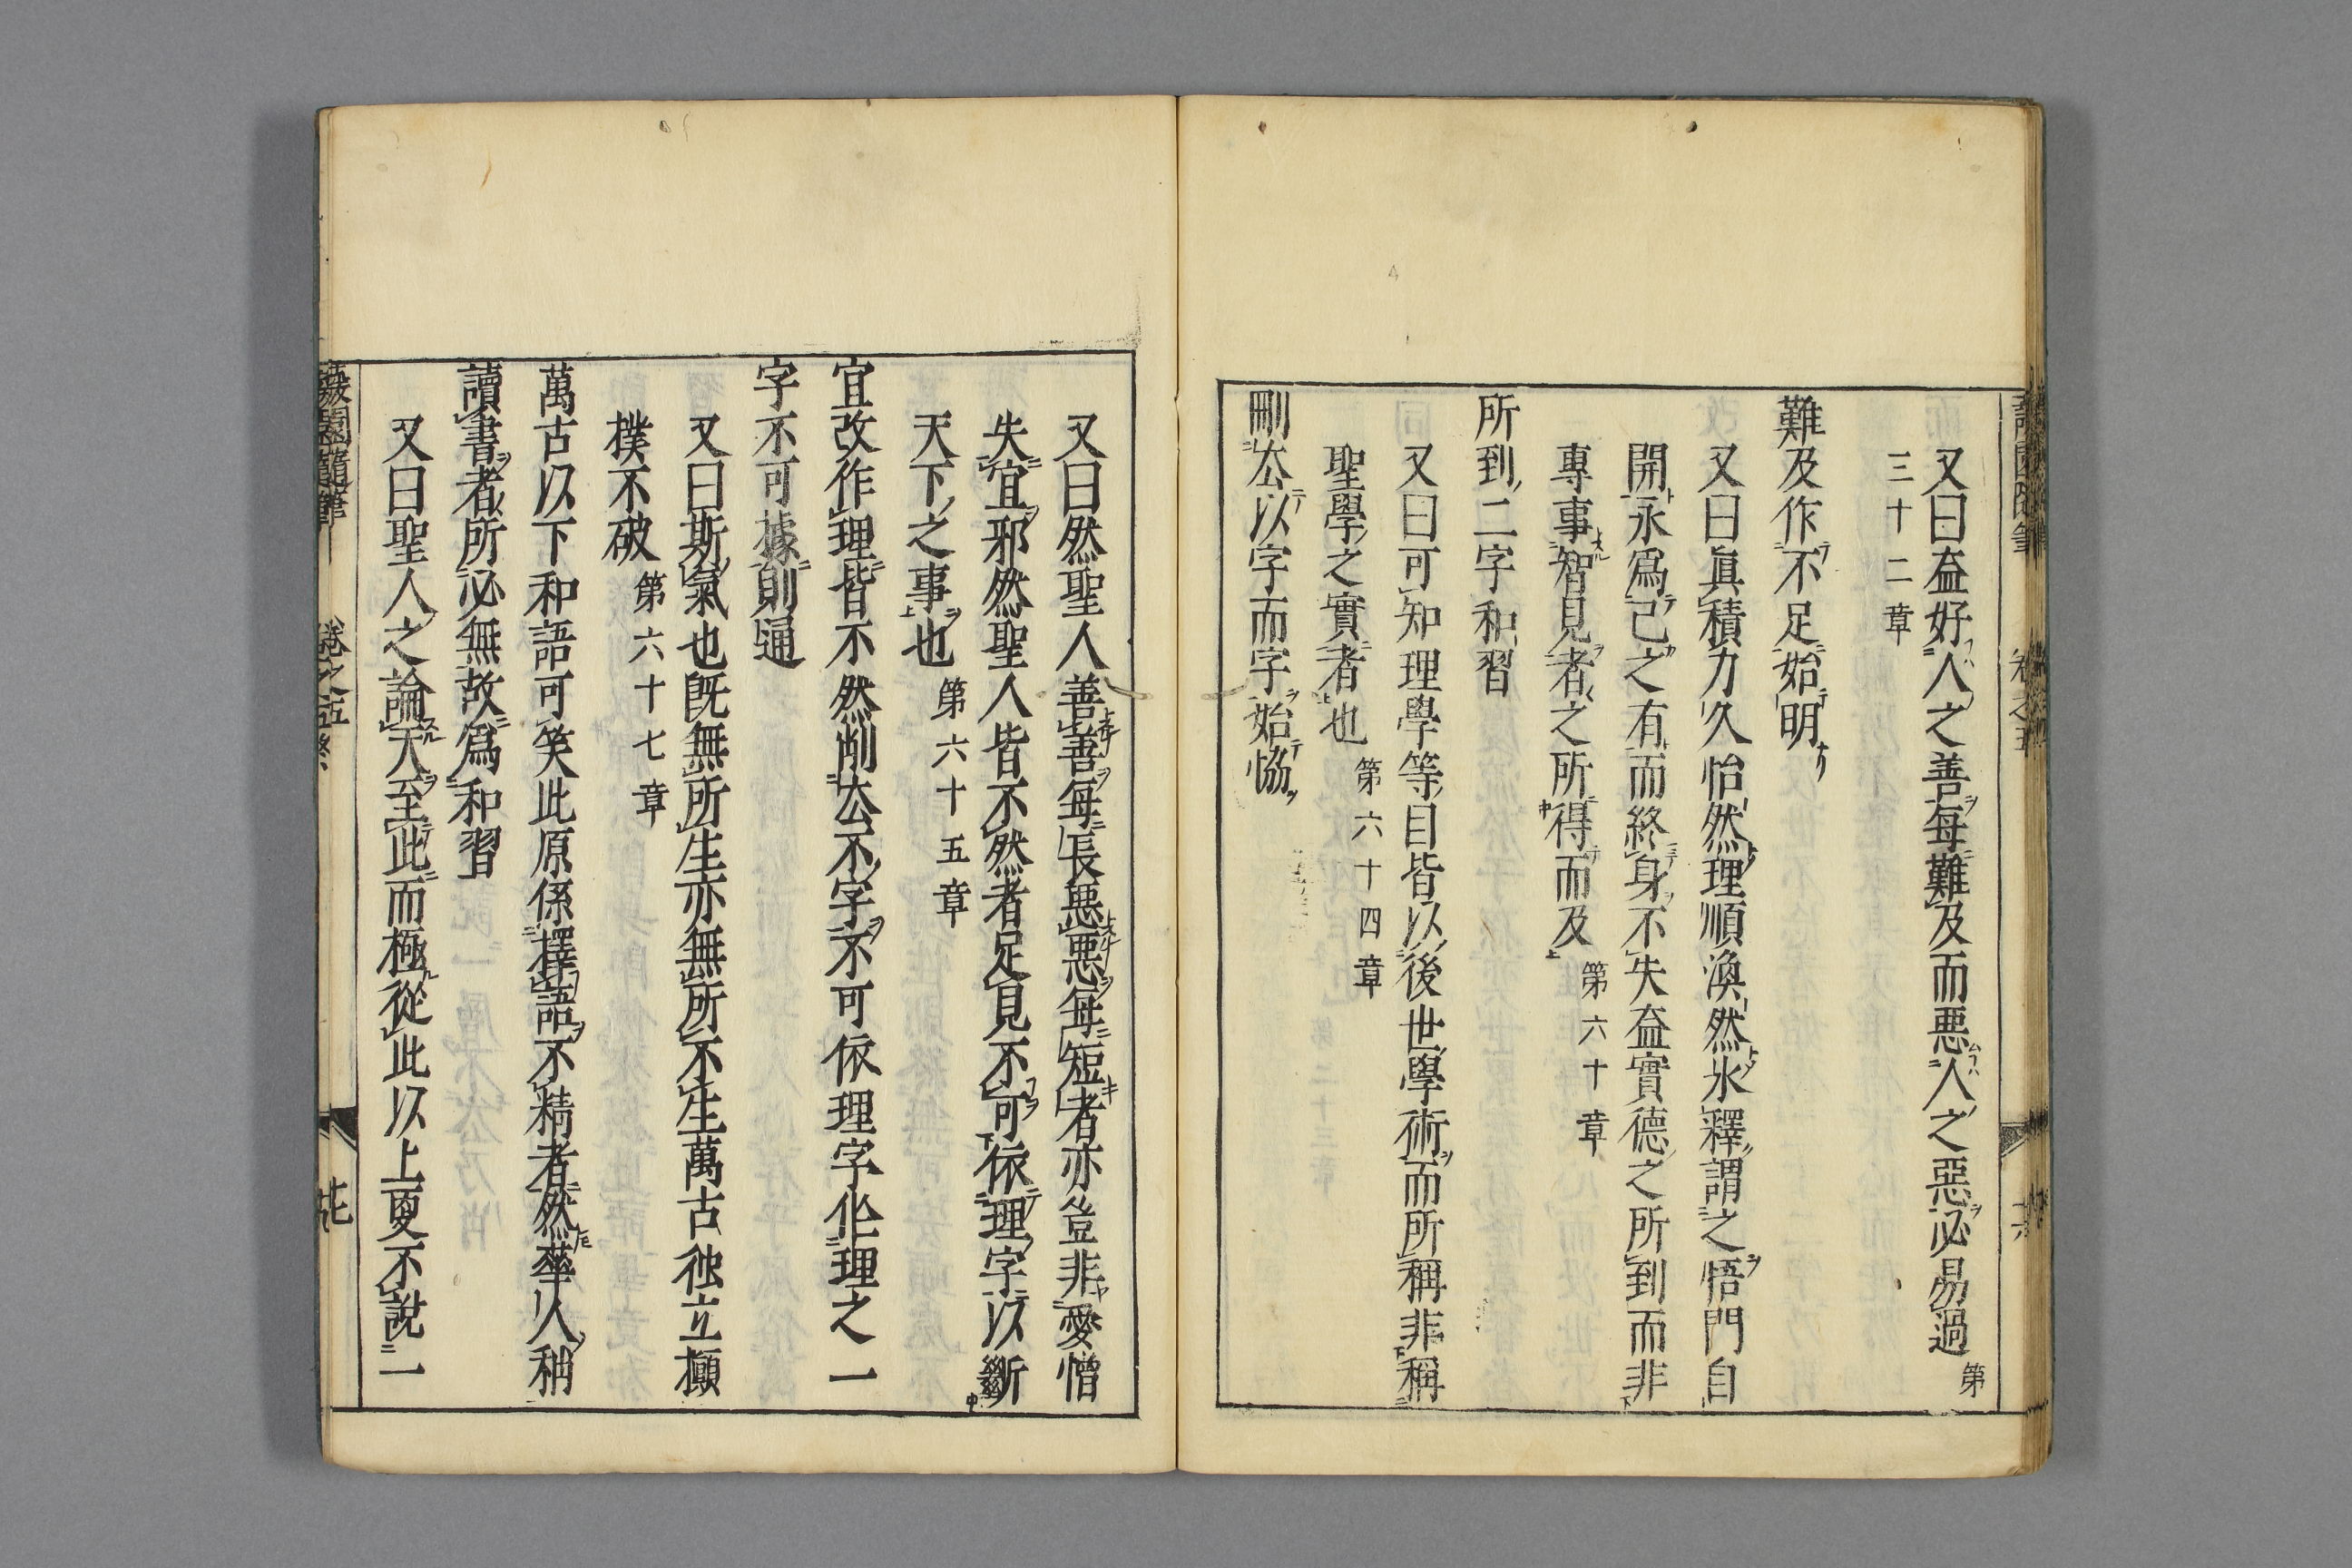 又曰益好人之善每難及而悪人之惡必易過第
三十二章
難及作不足始明
又曰眞積力久怡然理順渙然氷釋謂之悟門自
開永爲己之有而終身不失益實德之所到而非
專事智見者之所得而及第六十章
所到二字和習
又曰可知理學等目皆以後世學術而所稱非稱
聖學之實者也第六十四章
刪厺以字而字始恊
又曰然聖人善善每長惡惡每短者亦豈非愛憎
失宜邪然聖人皆不然者足見不可依理字以斷
天下之事也第六十五章
宜改作理皆不然刪厺不字不可依理字化理之一
字不可據則通
又曰斯氣也既無所生亦無所不生萬古獨立顚
撲不破第六十七章
萬古以下和語可笑此原係擇語不精者然華人稱
讀書者所必無故爲和習
又曰聖人之論天至此而極從此以上更不說一
蘐園隨筆 卷之五終